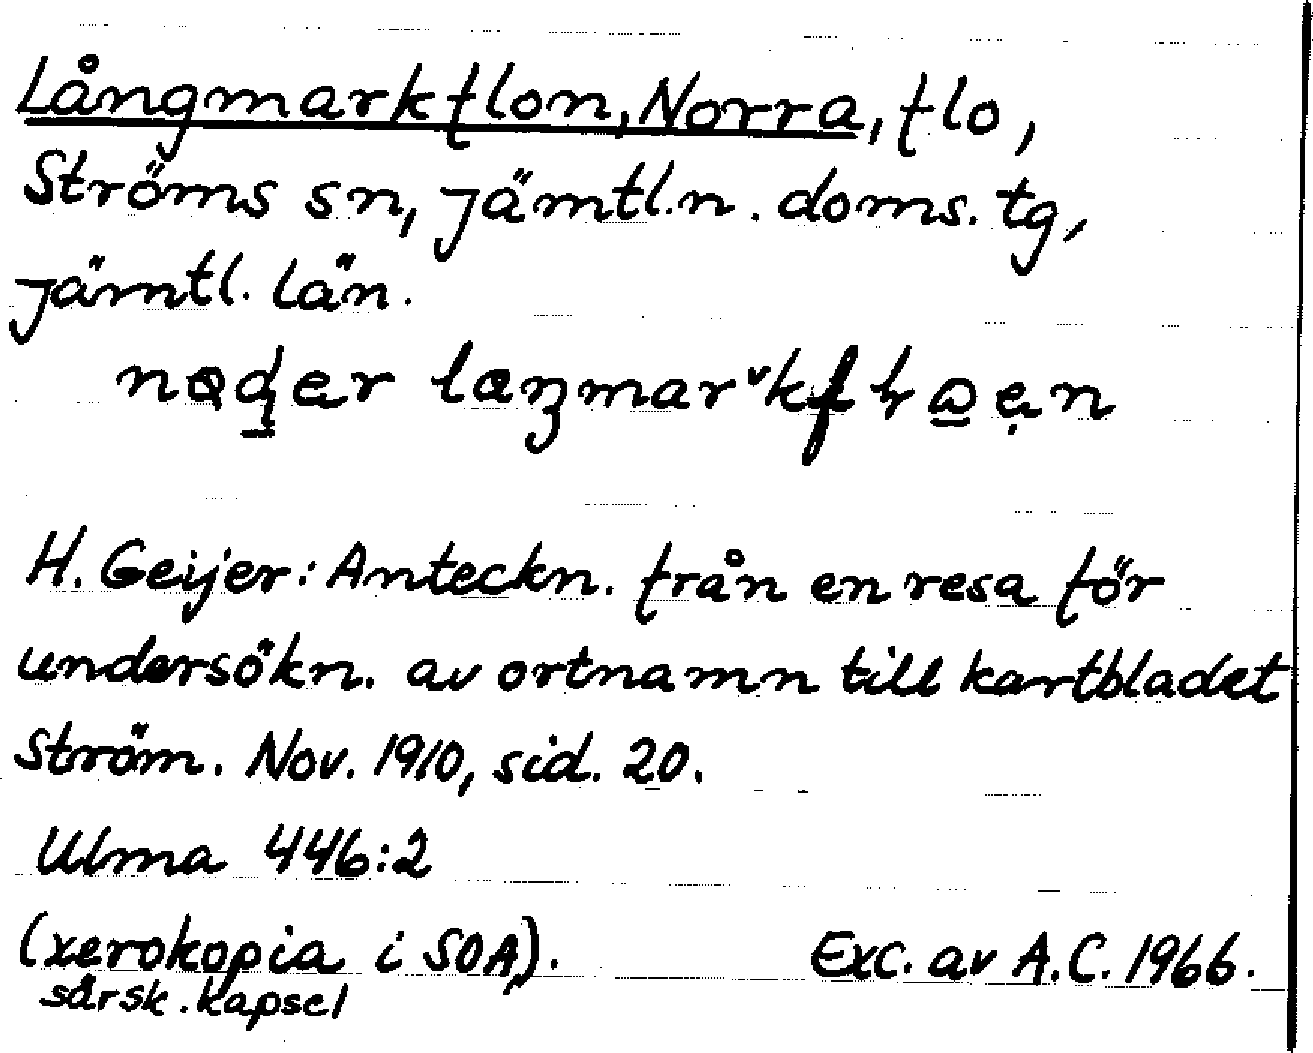 Långmarkflon, Norra, flo,
Ströms sn, Jämtl.n. doms. tg,
Jämtl. län.
H. Geijer: Anteckn. från en resa för
undersökn. av ortnamn till kartbladet
Ström. Nov. 1910, sid. 20.
Ulma 446:2
(xerokopia i SOA). Exc. av A.C. 1966.
särsk. kapsel